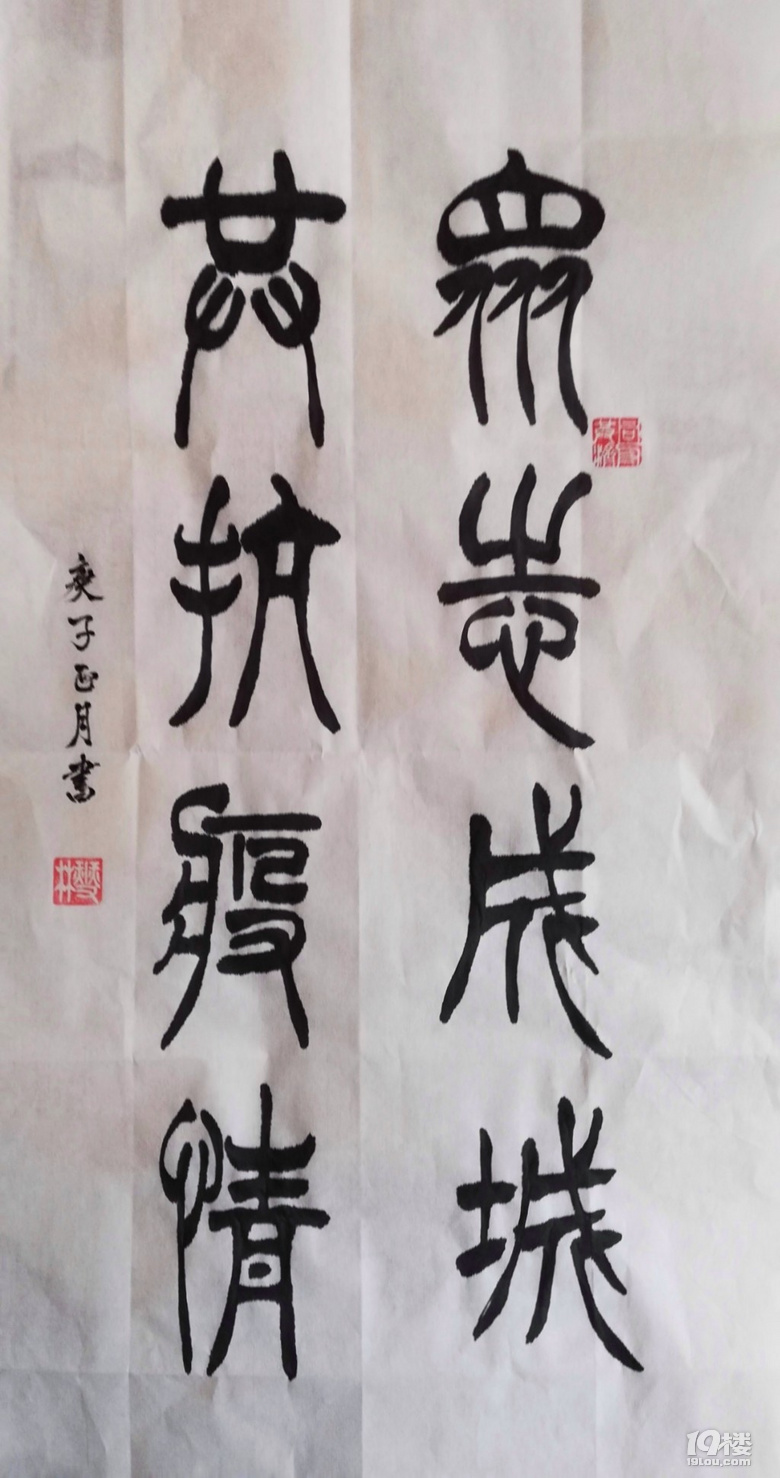 眾志成城
共抗疫情
庚子正月書
19楼
19lou.com